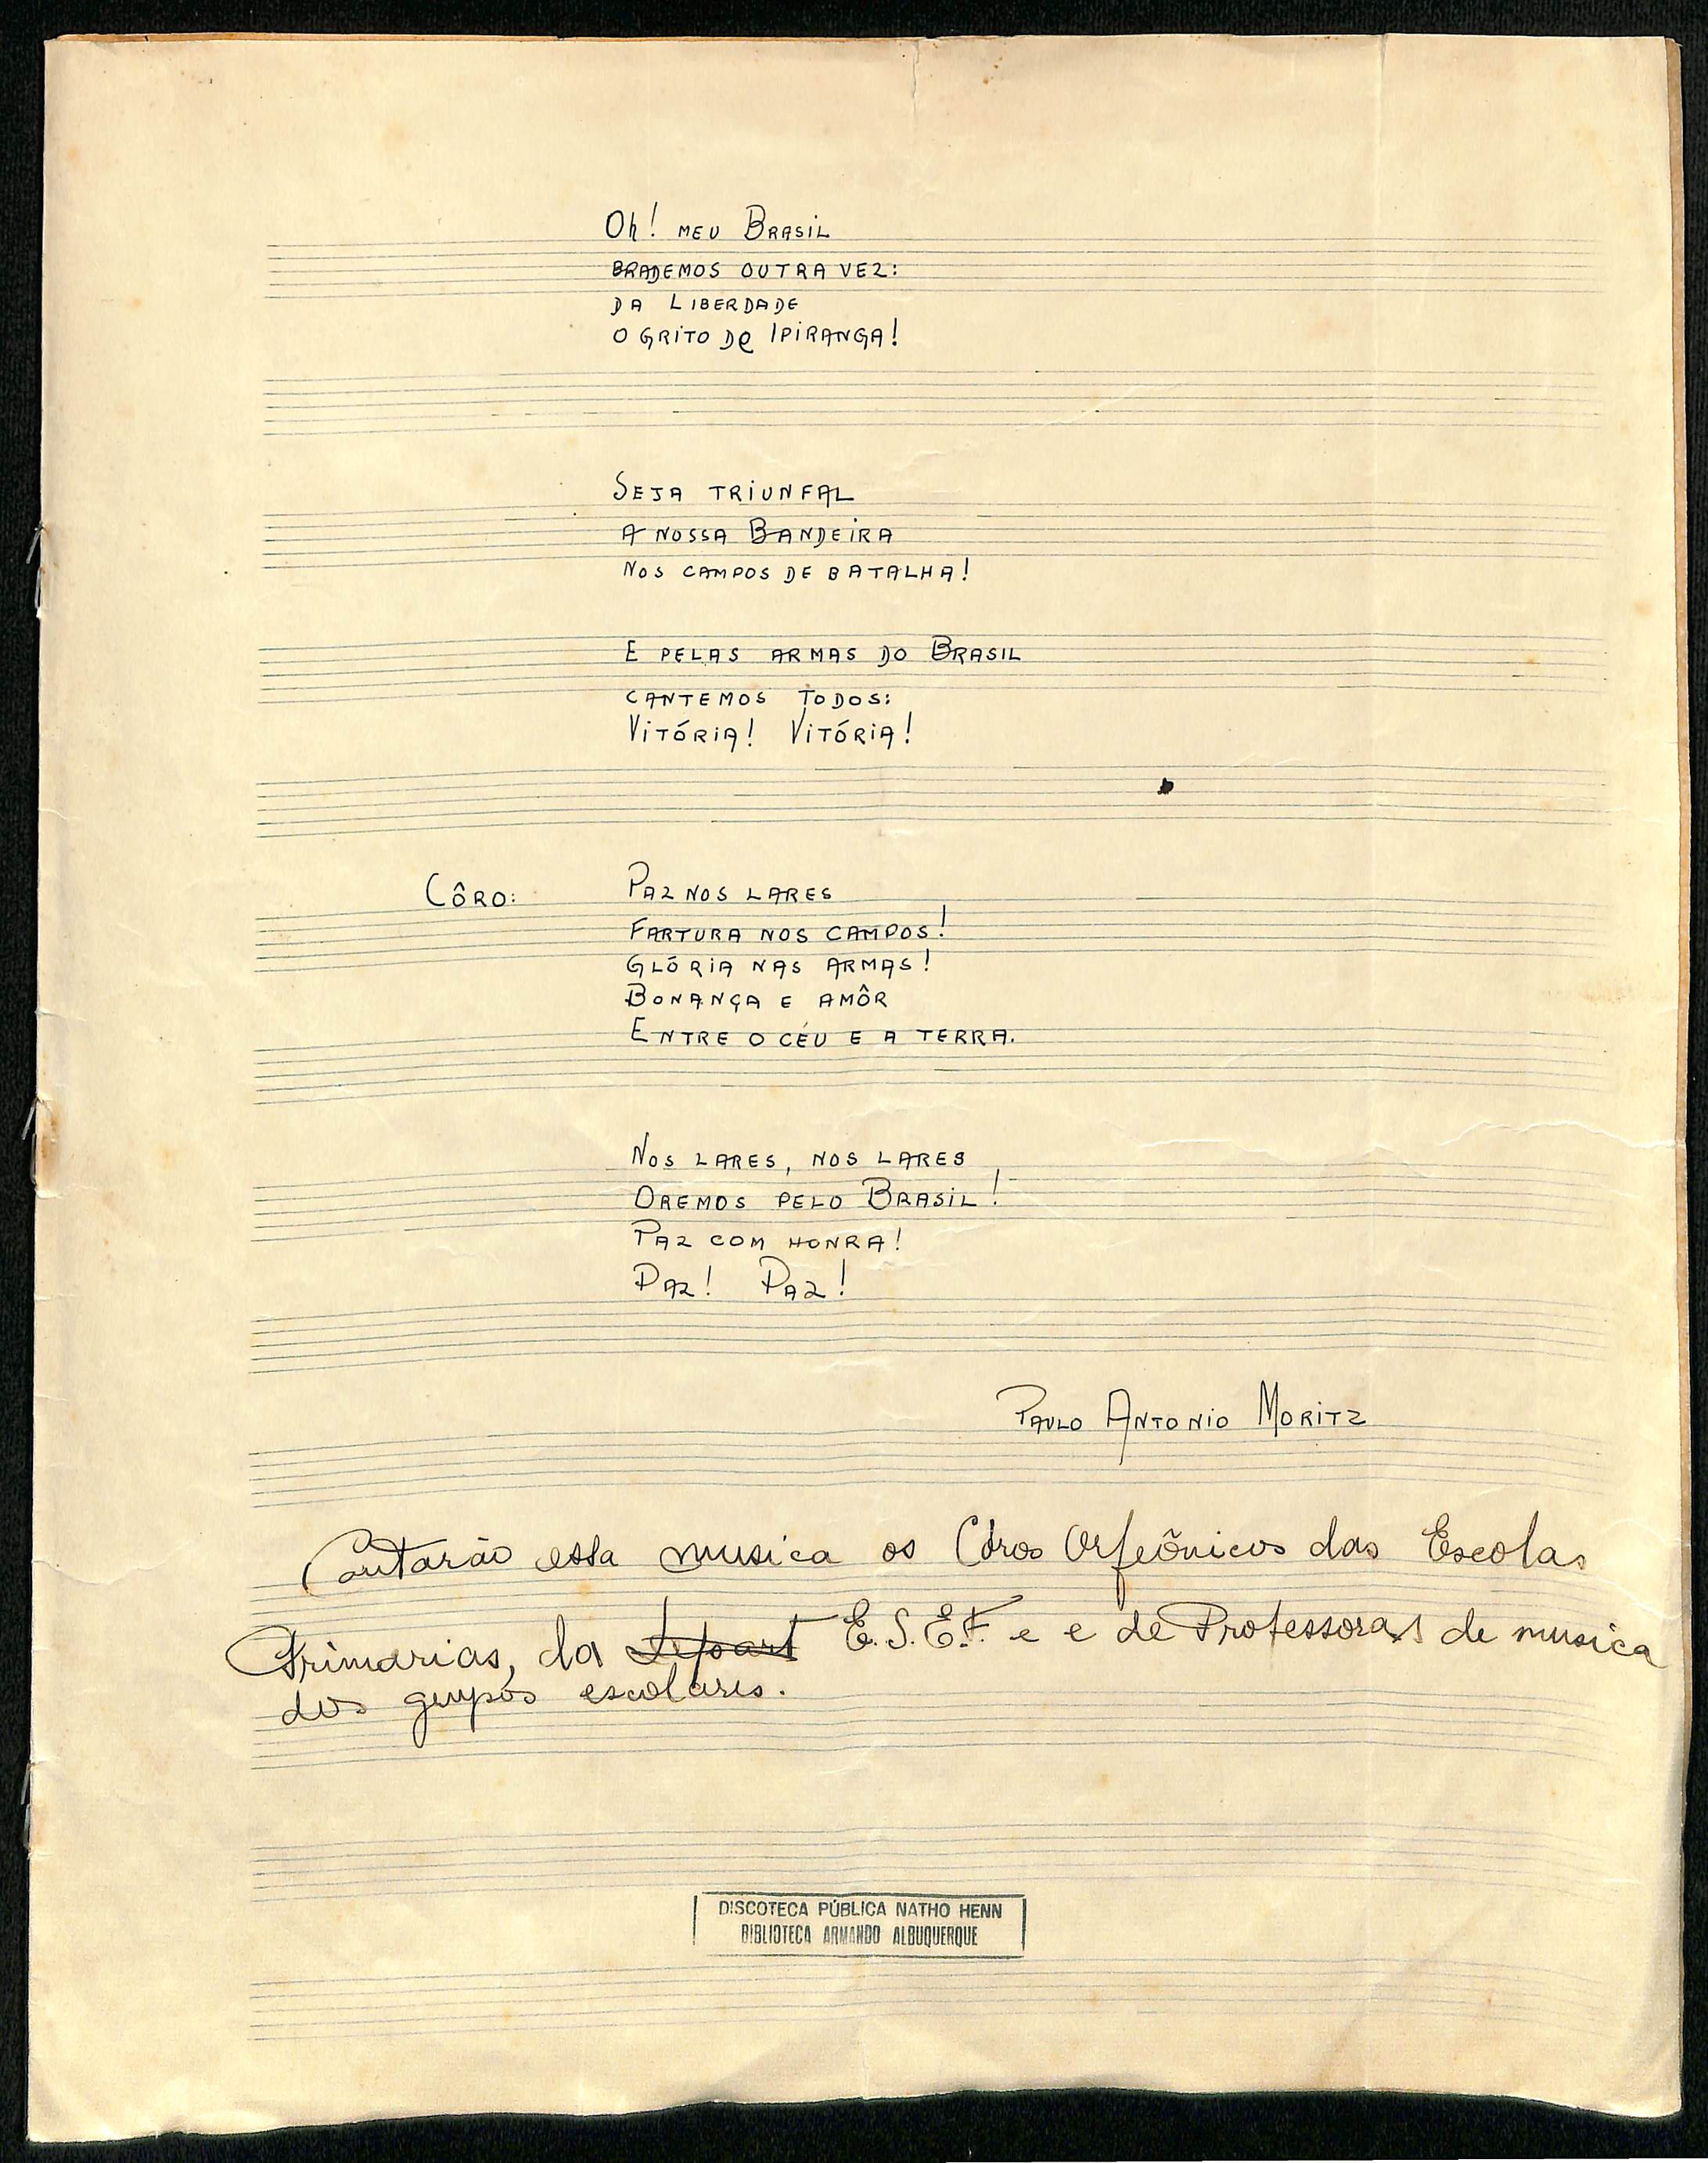 Oh! MEU BRASIL
BRADEMOS OUTRA VEZ:
DA LIBERDADE
O GRITO De IPIRANGA!
SEJA TRIUNFAL
A NOSSA BANDEIRA
NOS CAMPOS DE BATALHA!
E PELAS ARMAS DO BRASIL
CANTEMOS TODOS:
VITÓRIA! VITÓRIA!
CÔRO: PAZ NOS LARES
FARTURA NOS CAMPOS!
GLÓRIA NAS ARMAS!
BONANÇA E AMÔR
ENTRE O CÉU E A TERRA.
NOS LARES, NOS LARES
OREMOS PELO BRASIL!
PAZ COM HONRA!
PAZ! PAZ!
PAULO ANTONIO MORITZ
Cantarão esta musica os Côros Orfeônicos das Escolas
Primarias, da Depart E.S.E.F. e e de Professoras de musica
dos grupos escolares.
DISCOTECA PÚBLICA NATHO HENN
BIBLIOTECA ARMANDO ALBUQUERQUE